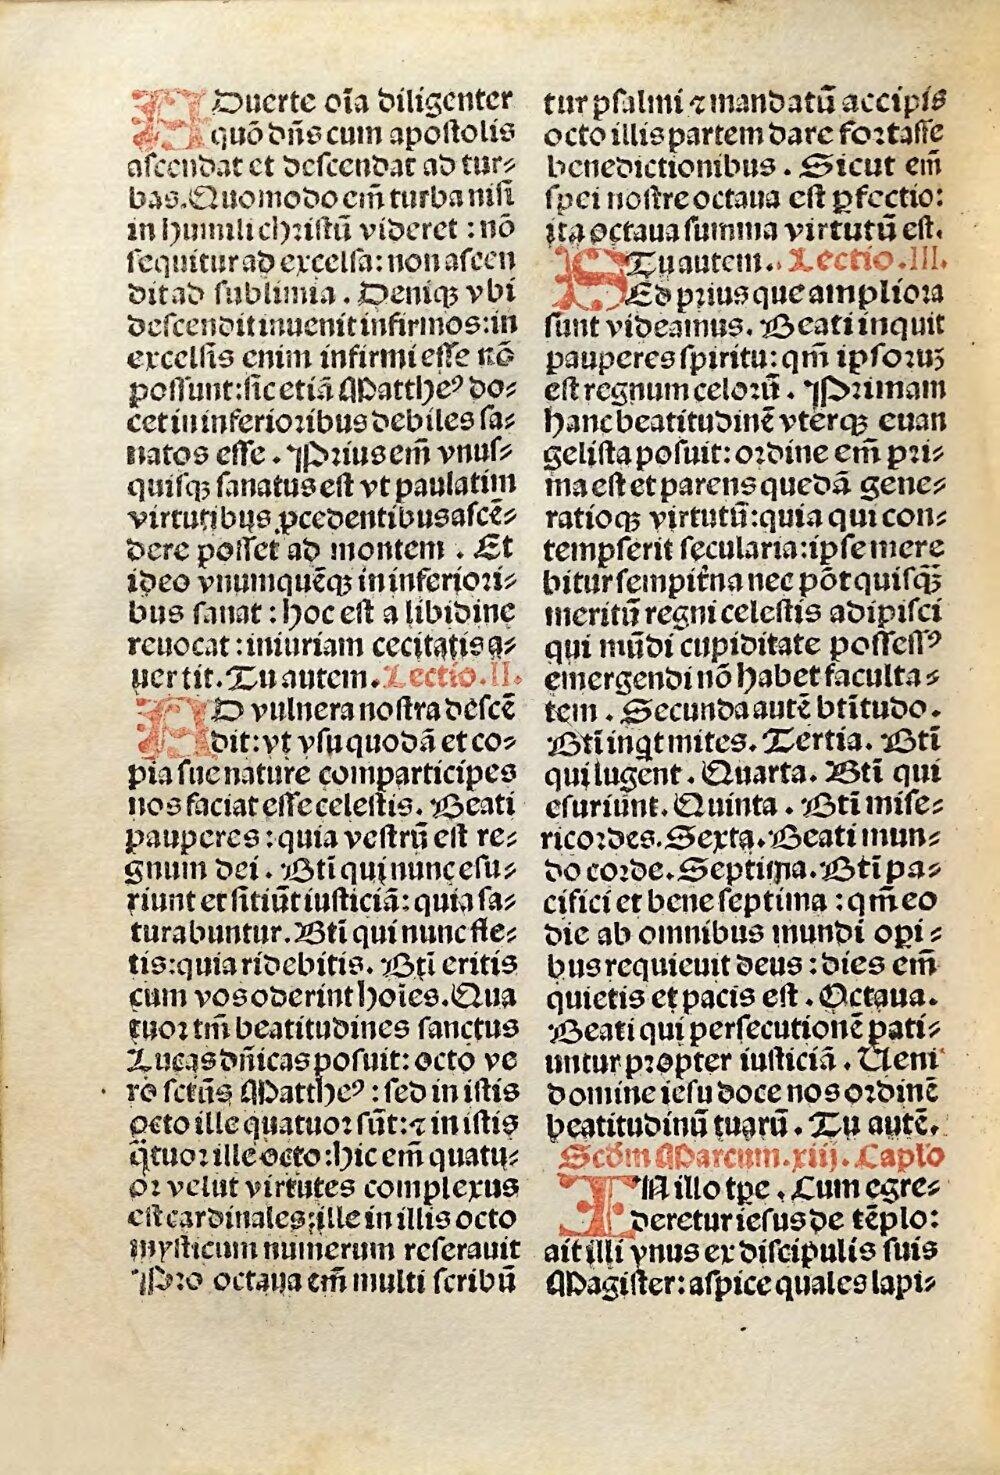 ADuerte oīa diligenter
quō dn̄s cum apostolis
ascendat et descendat ad tur⸗
bas. Quomodo em̄ turba nisi
in humili christū videret : nō
sequitur ad excelsa: non ascen
dit ad sublimia . Deniqꝫ vbi
descendit inuenit infirmos: in
excelsis enim infirmi esse nō
possunt: sic etiā Mattheꝰ do⸗
cet in inferioribus debiles sa⸗
natos esse . Prius em̄ vnus⸗
quisqꝫ sanatus est vt paulatim
virtutibus ꝓcedentibus ascē⸗
dere posset ad montem . Et
ideo vnumquēqꝫ in inferiori⸗
bus sanat : hoc est a libidine
reuocat : iniuriam cecitatis a⸗
uertit. Tu autem. Lectio .II.
AD vulnera nostra descē
dit: vt vsu quodā et co⸗
pia sue nature comparticipes
nos faciat esse celestis. Beati
pauperes : quia vestrū est re⸗
gnum dei . Bt̄i qui nunc esu⸗
riunt et sitiūt iusticiā: quia sa⸗
turabuntur. Bt̄i qui nunc fle⸗
tis: quia ridebitis. Bt̄i eritis
cum vos oderint hoīes. Qua
tuor tm̄ beatitudines sanctus
Lucas dn̄icas posuit: octo ve
ro sctūs Mattheꝰ : sed in istis
octo ille quatuor sūt: ⁊ in istis
q̄tuor ille octo : hic em̄ quatu⸗
or velut virtutes complexus
est cardinales: ille in illis octo
mysticum numerum reserauit
Pro octaua em̄ multi scribū
tur psalmi ⁊ mandatū accipis
octo illis partem dare fortasse
benedictionibus . Sicut em̄
spei nostre octaua est ꝑfectio:
ita octaua summa virtutū est.
Tu autem. Lectio .III.
SEd prius que ampliora
sunt videamus. Beati inquit
pauperes spiritu: qm̄ ipsoruꝫ
est regnum celorū . Primam
hanc beatitudinē vterqꝫ euan
gelista posuit: ordine em̄ pri⸗
ma est et parens quedā gene⸗
ratioqꝫ virtutū: quia qui con⸗
tempserit secularia: ipse mere
bitur sempit̄na nec pōt quisqꝫ̄
meritū regni celestis adipisci
qui mūdi cupiditate possessꝰ
emergendi nō habet faculta⸗
tem . Secunda autē bt̄itudo.
Bt̄i inqt̄ mites. Tertia. Bt̄i
qui lugent . Quarta. Bt̄i qui
esuriunt. Quinta . Bt̄i mise⸗
ricordes. Sexta. Beati mun⸗
do corde. Septima. Bt̄i pa⸗
cifici et bene septima : qm̄ eo
die ab omnibus mundi operi⸗
bus requieuit deus : dies em̄
quietis et pacis est . Octaua.
Beati qui persecutionē pati⸗
untur propter iusticiā . Ueni
domine iesu doce nos ordinē
beatitudinū tuarū . Tu autē.
Scd̄m Marcum. xiij. Caplo
IN illo tpe . Cum egre⸗
deretur iesus de tēplo:
ait illi vnus ex discipulis suis
Magister: aspice quales lapi⸗